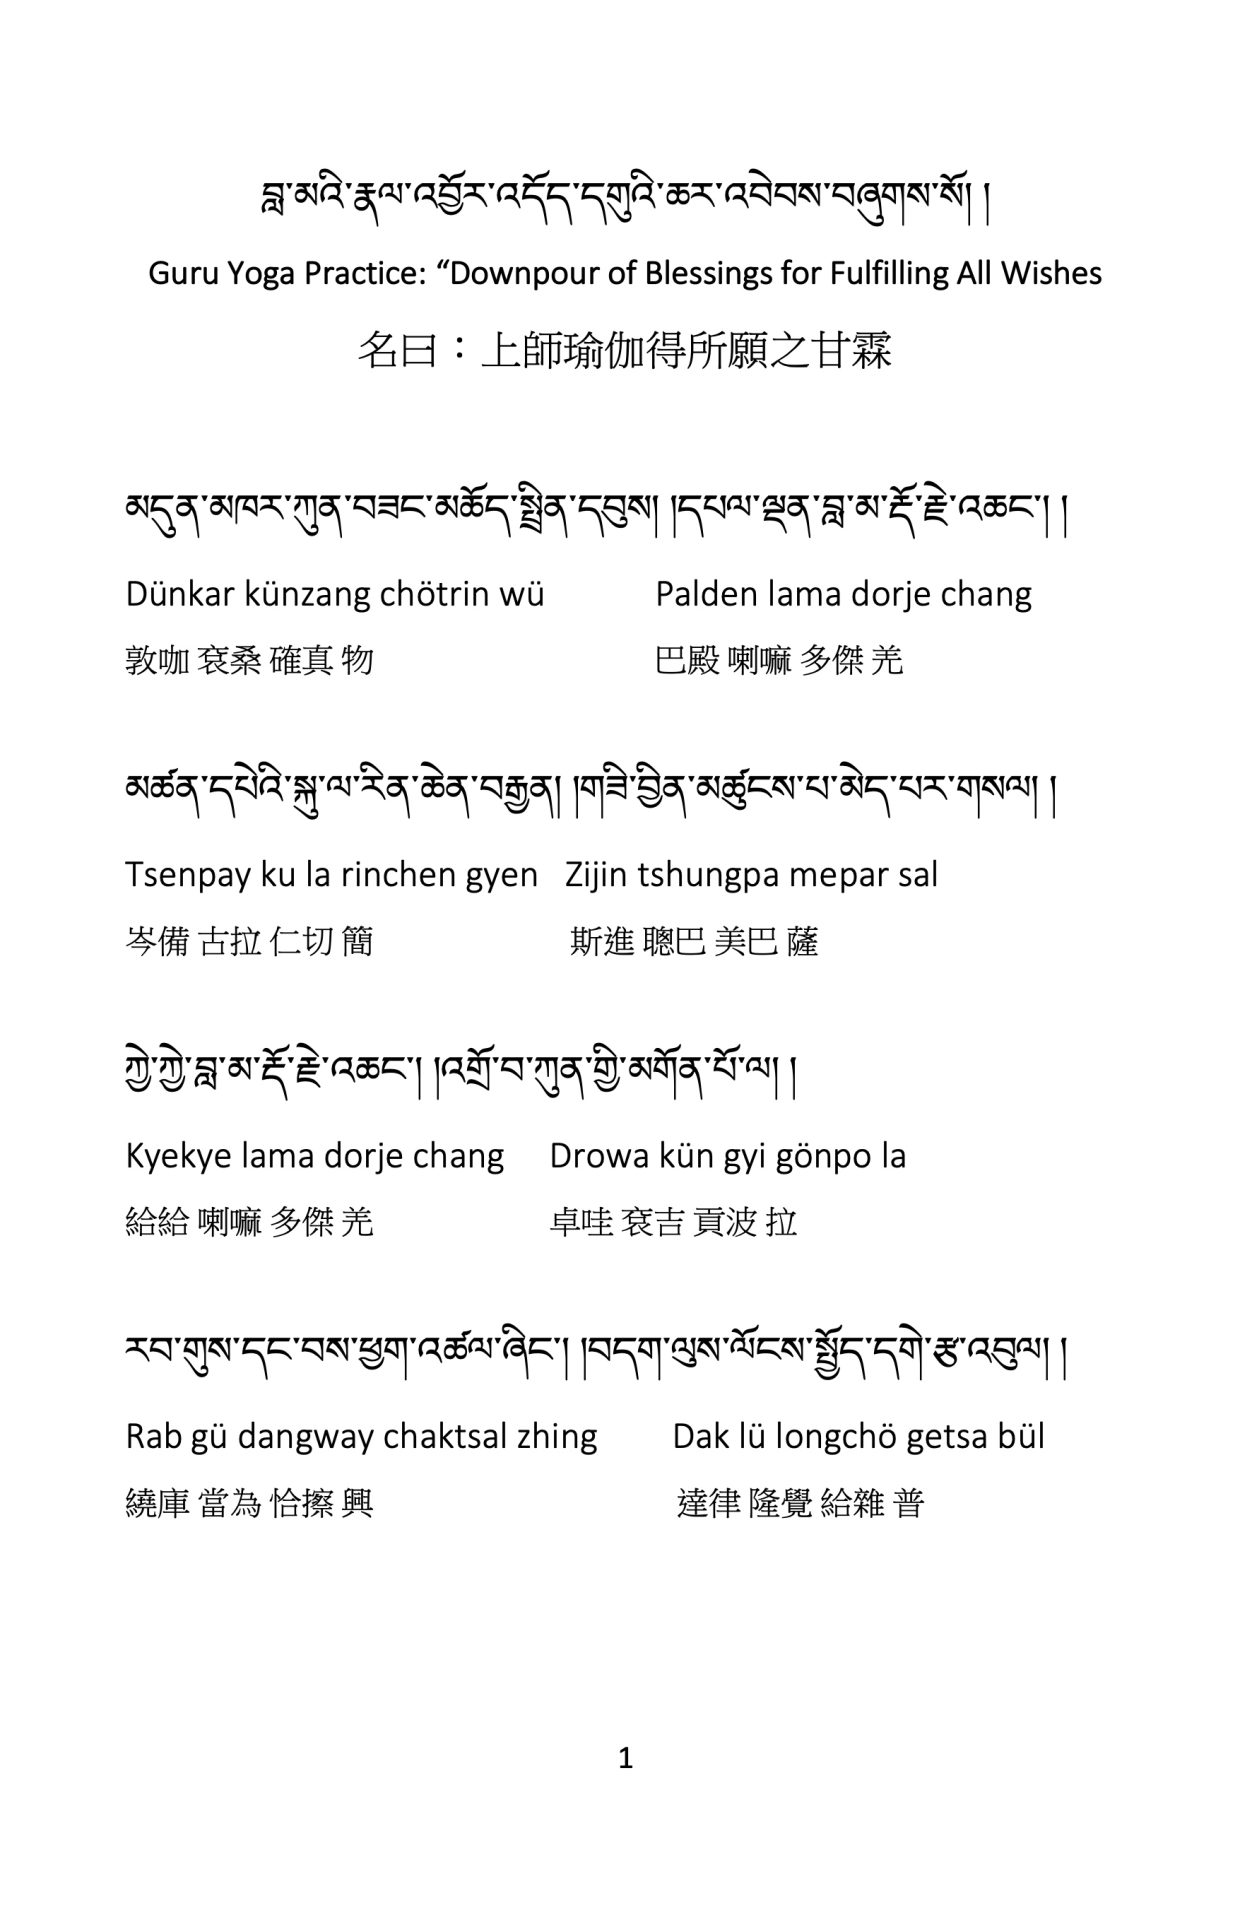 བླ་མའི་རྣལ་འབྱོར་འདོད་དགུའི་ཆར་འབེབས་བཞུགས་སོ། །
Guru Yoga Practice: “Downpour of Blessings for Fulfilling All Wishes
名曰：上師瑜伽得所願之甘霖
མདུན་མཁར་ཀུན་བཟང་མཆོད་སྤྲིན་དབུས། །དཔལ་ལྡན་བླ་མ་རྡོ་རྗེ་འཆང་། །
Dünkar künzang chötrin wü Palden lama dorje chang
敦咖 袞桑 確真 物 巴殿 喇嘛 多傑 羌
མཚན་དཔེའི་སྐུ་ལ་རིན་ཆེན་བརྒྱན། །གཟི་བྱིན་མཚུངས་པ་མེད་པར་གསལ། །
Tsenpay ku la rinchen gyen Zijin tshungpa mepar sal
岑備 古拉 仁切 簡 斯進 聰巴 美巴 薩
ཀྱེ་ཀྱེ་བླ་མ་རྡོ་རྗེ་འཆང་། །འགྲོ་བ་ཀུན་གྱི་མགོན་པོ་ལ། །
Kyekye lama dorje chang Drowa kün gyi gönpo la
給給 喇嘛 多傑 羌 卓哇 袞吉 貢波 拉
རབ་གུས་དང་བས་ཕྱག་འཚལ་ཞིང་། །བདག་ལུས་ལོངས་སྤྱོད་དགེ་རྩ་འབུལ། །
Rab gü dangway chaktsal zhing Dak lü longchö getsa bül
繞庫 當為 恰擦 興 達律 隆覺 給雜 普
1